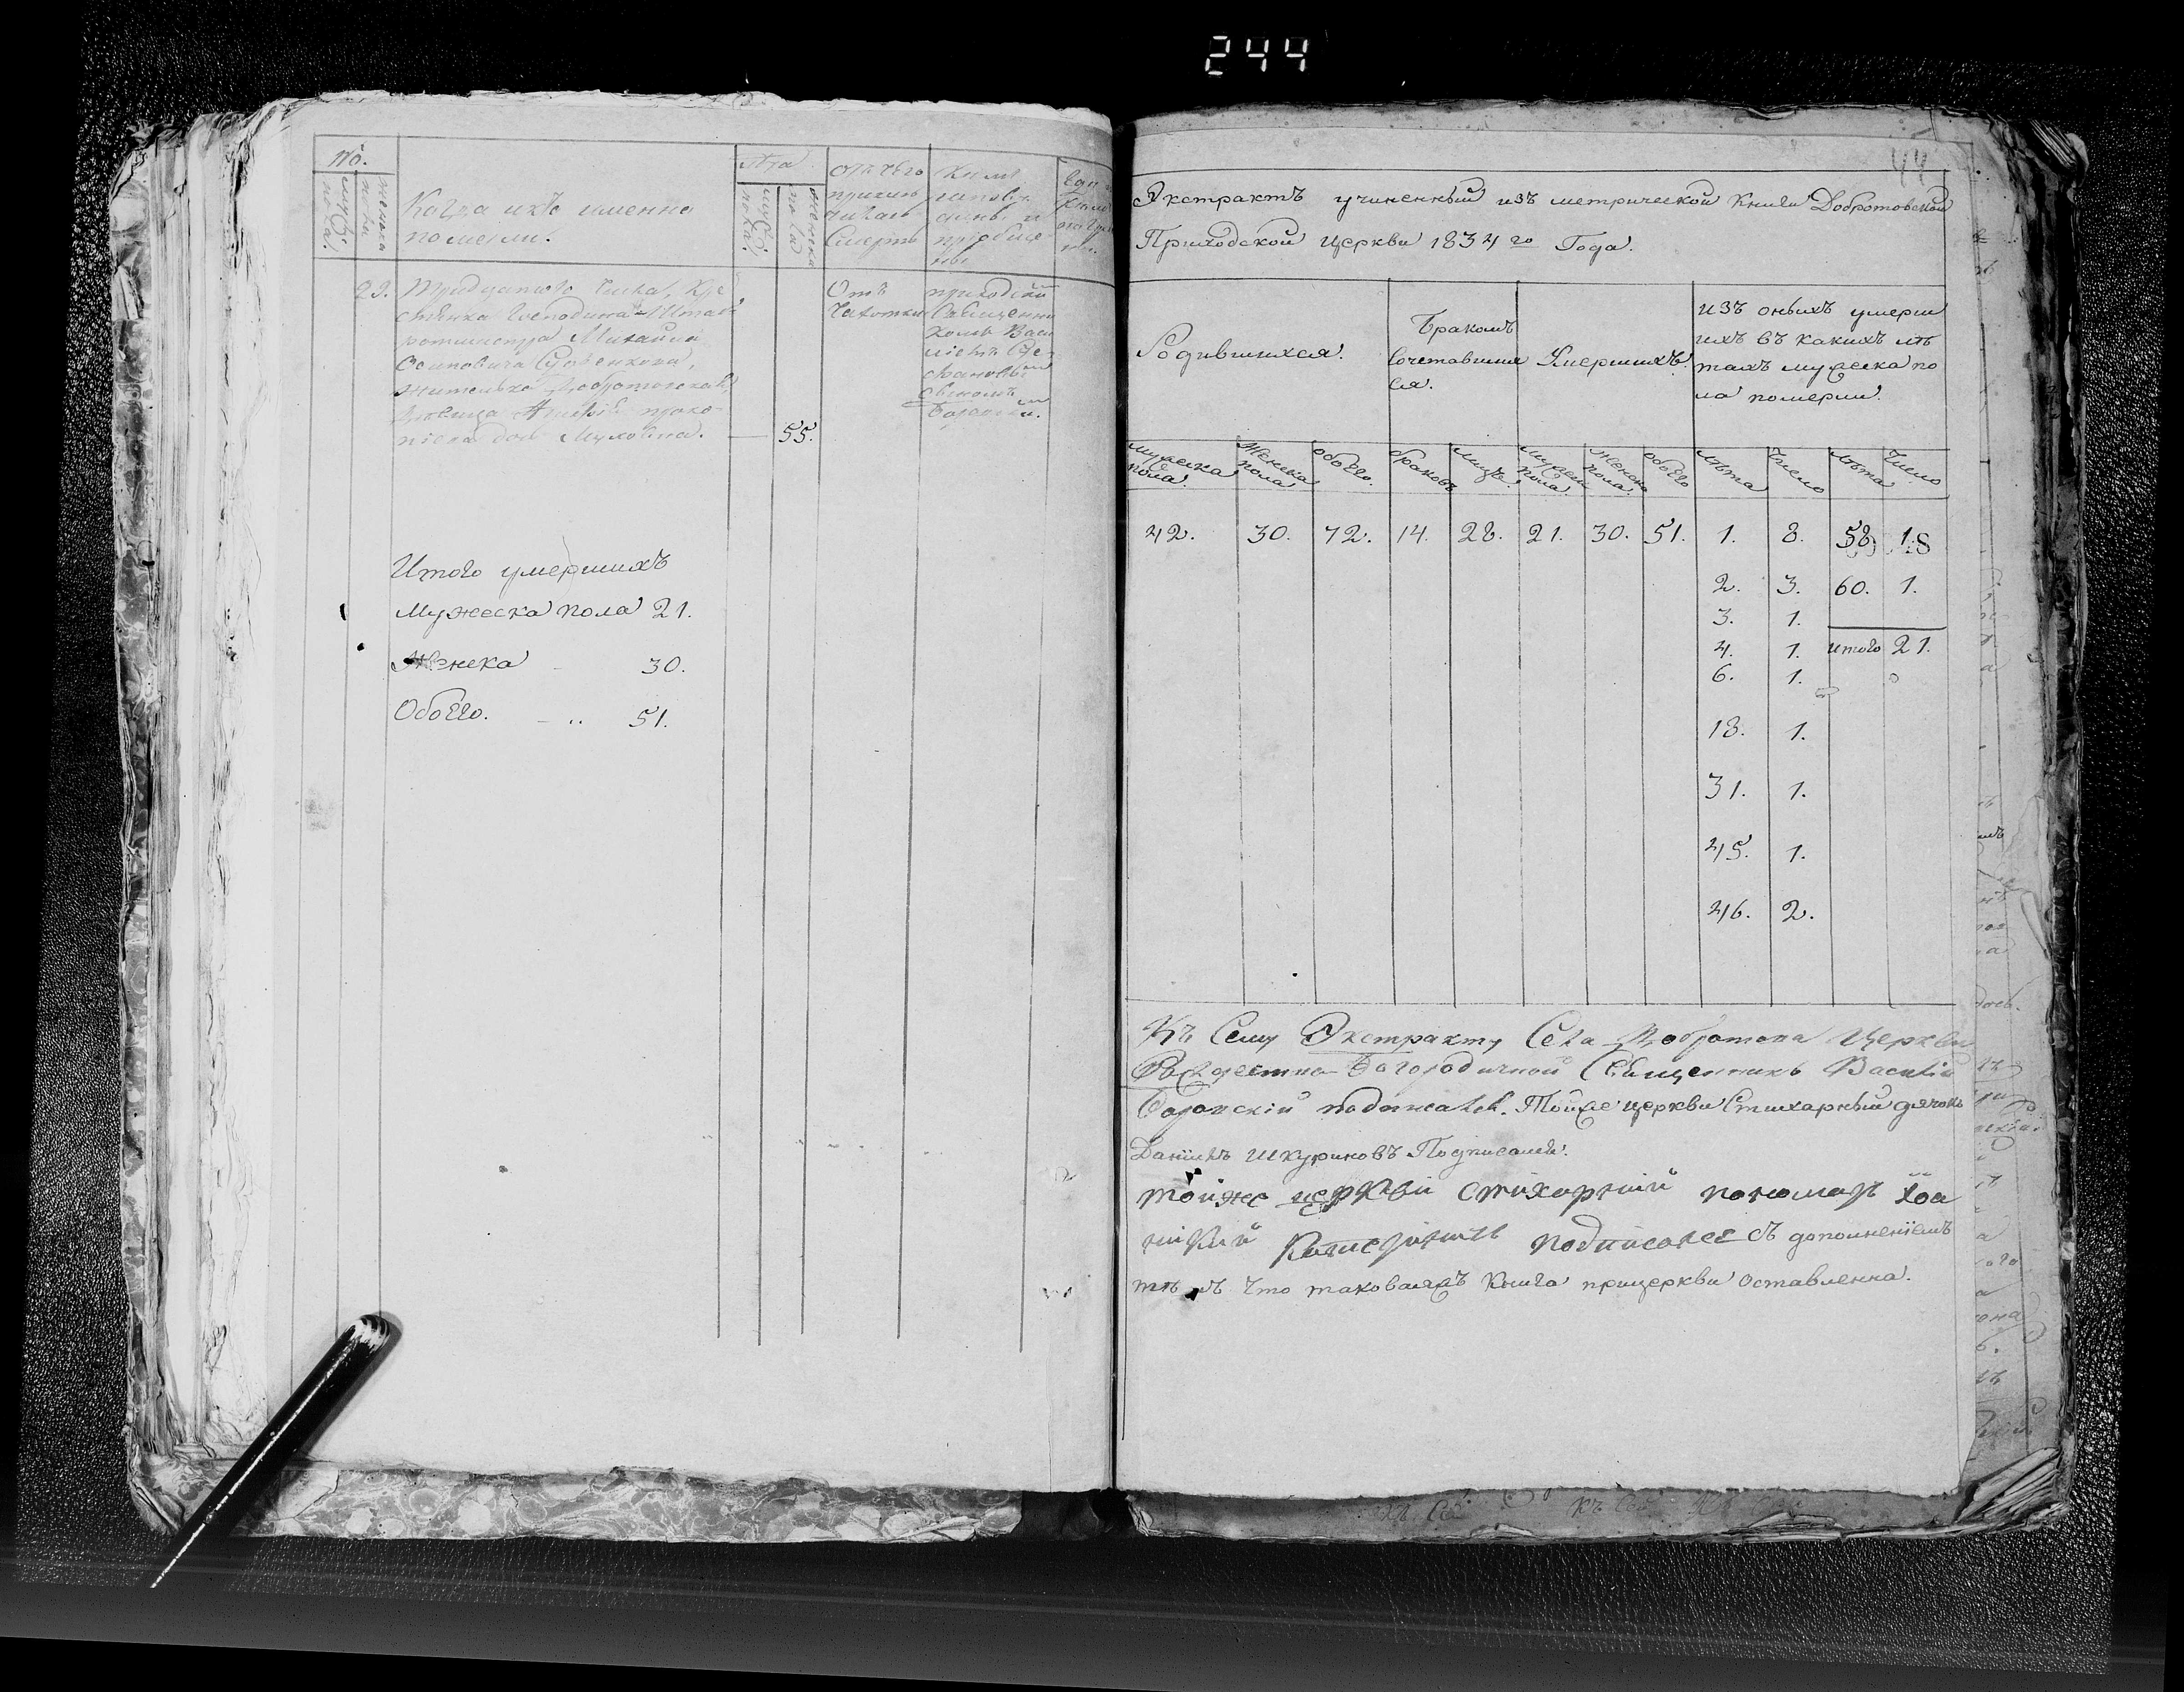 244
№.
мужеска пола.
женска пола
Когда ихъ именно
померли.
Лѣта
мужеска пола.
женска пола
отъ чего
приклю
чилась
смерть
Кѣмъ
исповѣ
даны и
приобще
ны
29. Тридцатого числа, Кре
стьянка Господина Штабъ
ротмистра Михаила
Осиповича Судіенкова,
жителька Добротовская,
вдовица
55.
Отъ
чахотки
приходскій
Священни
комъ Васи
ліемъ Сте
фановы
Итого умершихъ
Мужеска пола 21.
Женска - 30.
Обоего. - „ 51.
Экстрактъ учиненный изъ метрической Книги Добротовской
Приходской Церкви 1834 го Года.
Родившихся.
Бракомъ
Сочетавших
ся.
Умершихъ.
изъ оныхъ умерш
ихъ въ какихъ лѣ
тахъ мужеска по
ла померли.
Мужеска пола.
Женска пола
обоего.
браковъ
лицъ.
Мужеск пола.
Женска пола.
обоего
лѣта
Число
лѣта
Число
42. 30. 72. 14. 28. 21. 30. 51. 1. 8. 58. 1.
2. 3. 60. 1.
3. 1.
4. 1. итого 21.
6. 1.
18. 1.
31. 1.
45. 1.
46. 2.
Къ Сему Экстракту Села Добротова Церкви
Рождество-Богородичной Священникъ Василій
подписалсь. Тойже церкви Стихарный дячокъ
Даніилъ Шкуриковъ Подписалсь.
тойже церкви стихарній пономарь Іоа
подписалсе съ дополненіемъ
тѣмъ что таковаяжъ Книга прицеркви оставленна.